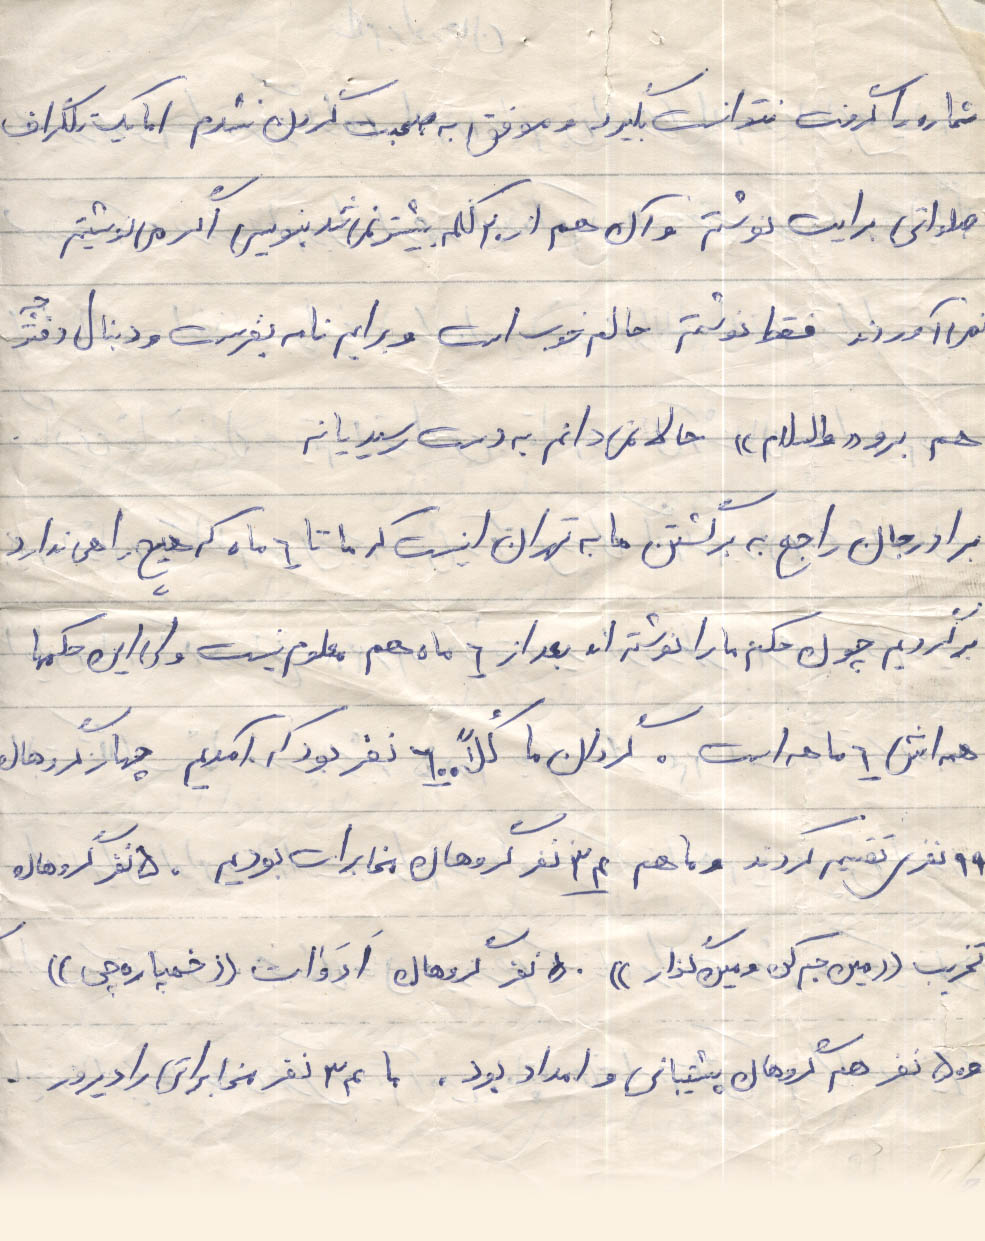 شماره را گرفت نتوانست بگیرد و موفق به صحبت کردن نشدم اما یک تلگراف
صلواتی برایت نوشتم و آن هم از ۲۰ کلمه بیشتر نمی‌شد بنویسی اگر می‌نوشتیم
نمی‌آوردند فقط نوشتم حالم خوب است و برایم نامه بفرست و دنبال دفترچه
هم برو «والسلام» حالا نمی‌دانم به دستت رسید یا نه
برادرجان راجع به برگشتن ما به تهران اینست که ما تا ۶ ماه که هیچ راهی ندارد
برگردیم چون حکم ما را نوشته اند بعد از ۶ ماه هم معلوم نیست ولی این حکمها
همه اش ۶ ماهه است . گردان ما کلاً ۶۰۰ نفر بود که آمدیم چهار گروهان
۹۹ نفری تقسیم کردند و ما هم ۳۴ نفر گروهان مخابرات بودیم . ۵۰ نفر گروهان
تخریب ((مین جمع کن و مین گذار )) ۵۰ نفر گروهان اَدَوات ((خمپاره چی))
و ۵۰ نفر هم گروهان پشتیبانی و امداد بود . ما ۳۴ نفر مخابراتی را دیروز .